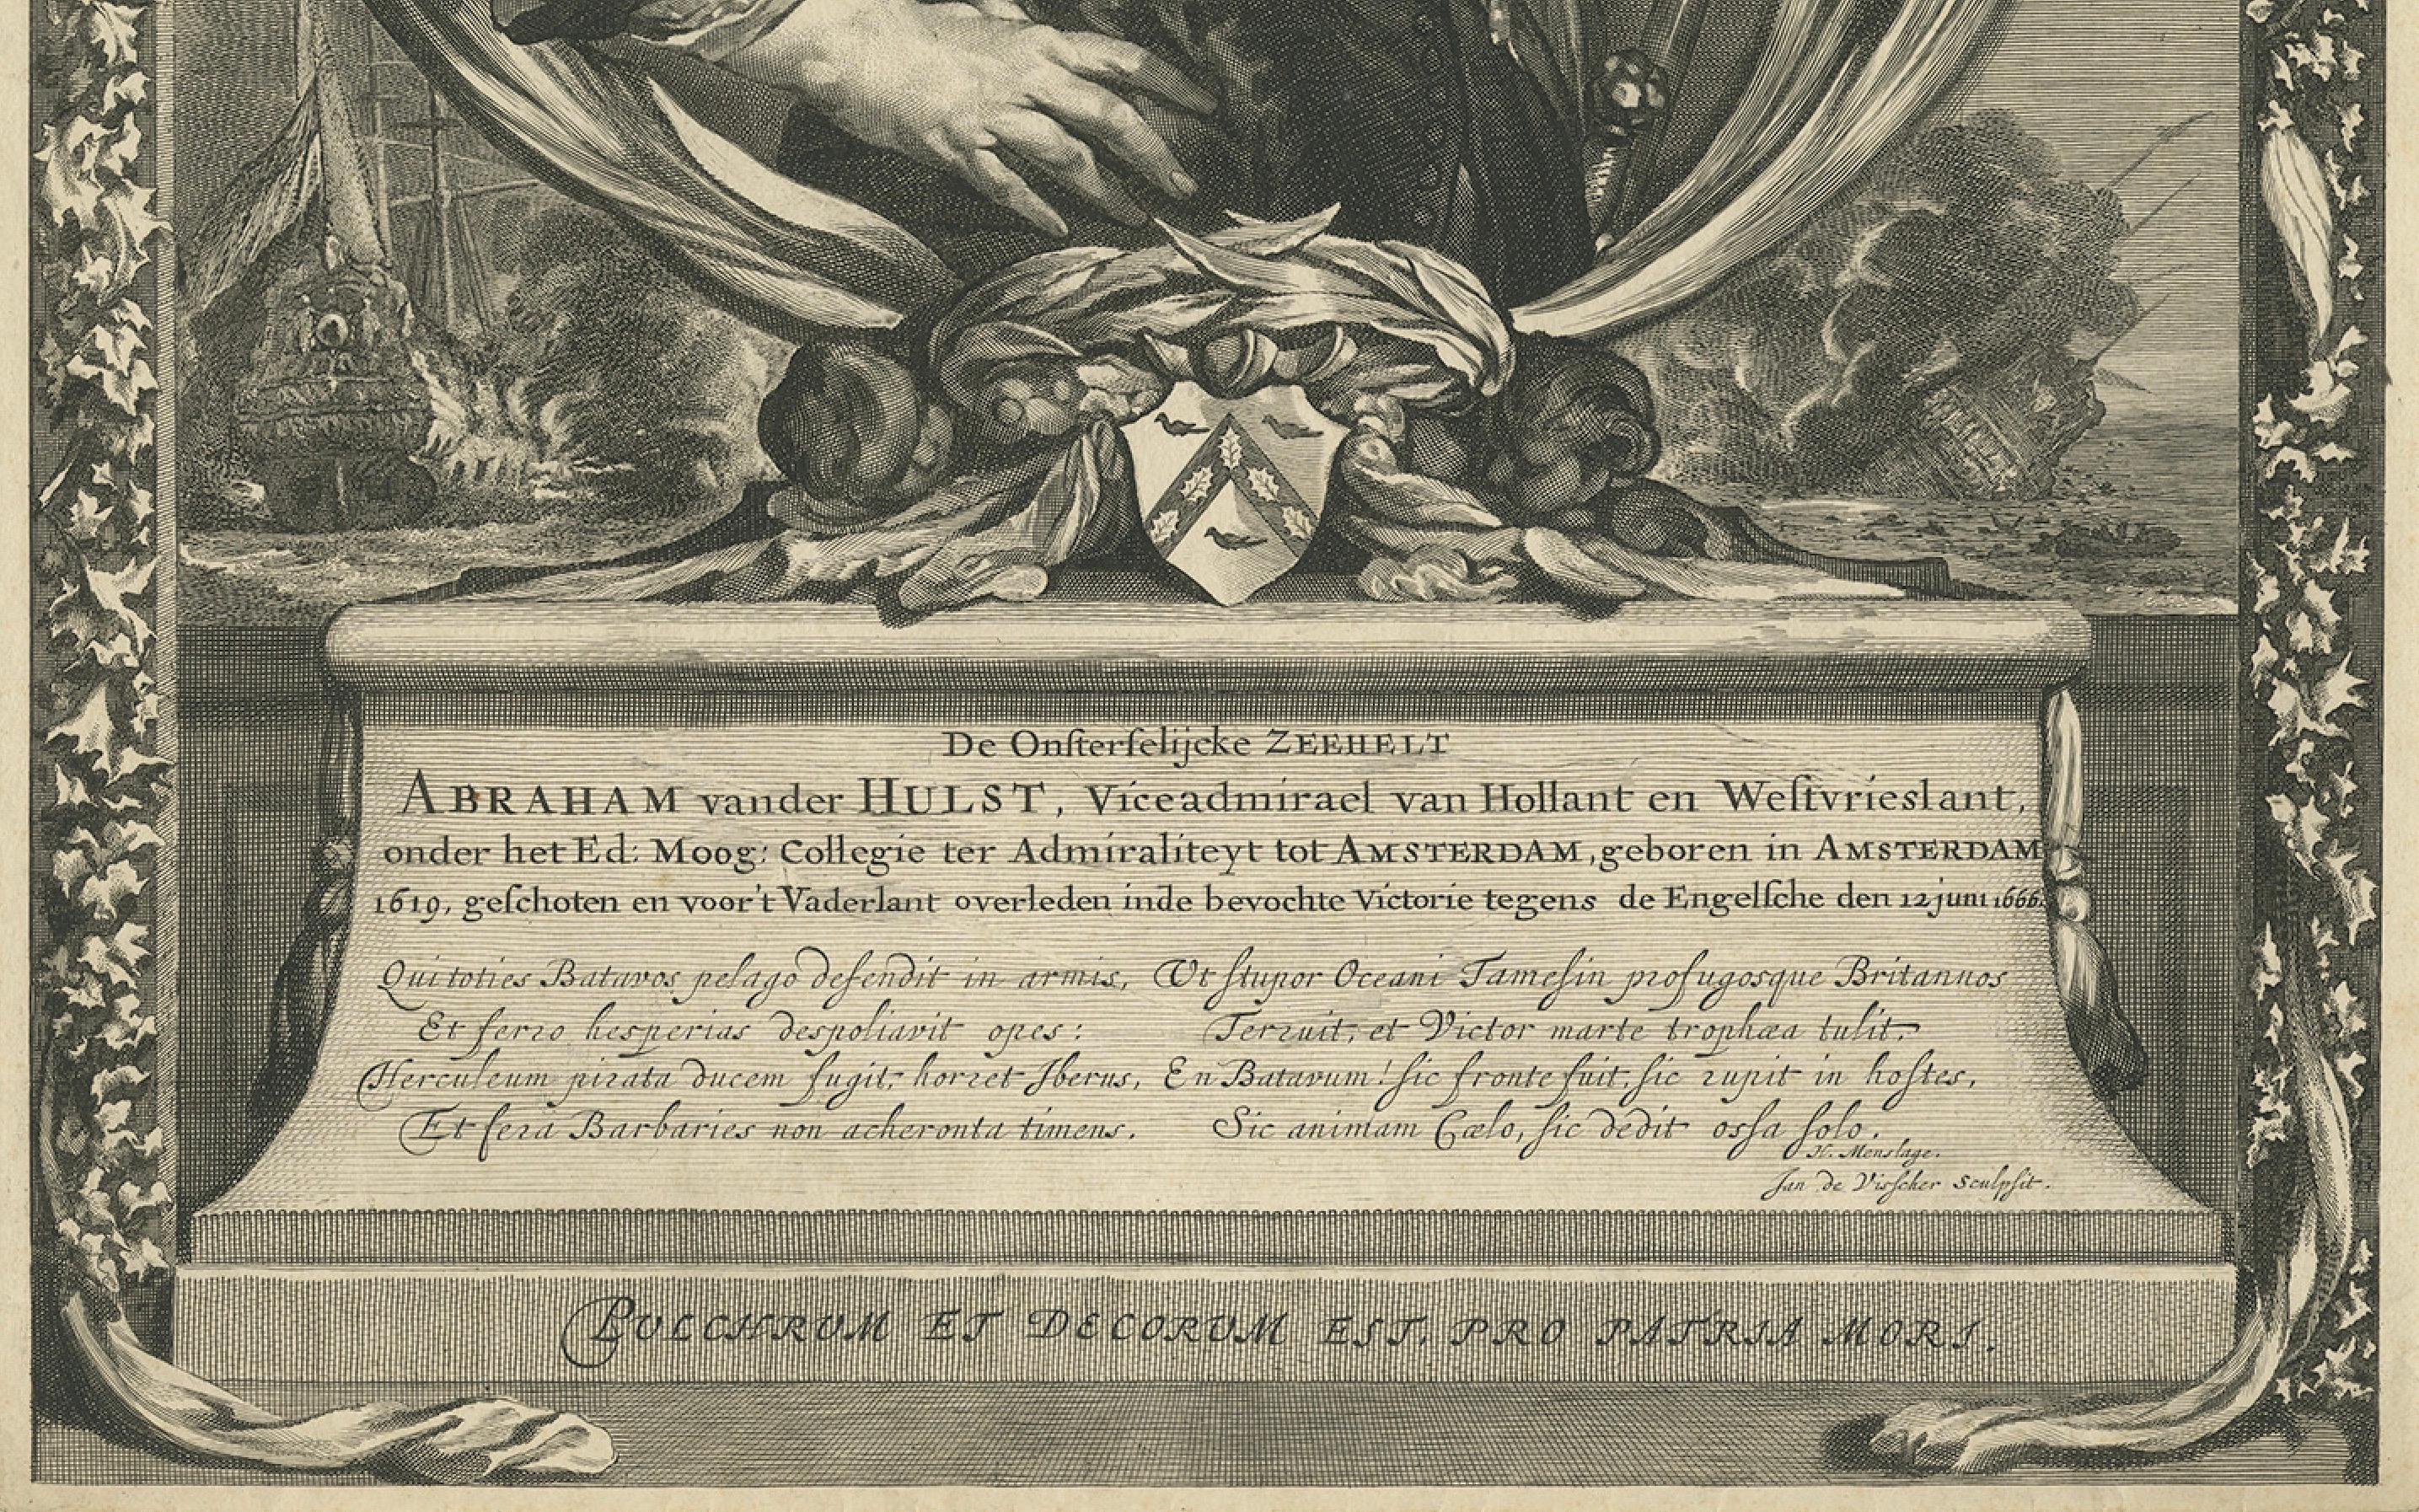 De Onſterfelijcke ZEEHELT
ABRAHAM vander HULST, Viceadmirael van Hollant en Weſtvrieslant,
onder het Ed: Moog: Collegie ter Admiraliteyt tot AMSTERDAM, geboren in AMSTERDAM
1619, geſchoten en voor't Vaderlant overleden inde bevochte Victorie tegens de Engelſche den 12 juni 1666.
Qui toties Batavos pelago defendit in armis,
Et ferro hesperias despoliavit opes:
Herculeum pirata ducem fugit, horret Iberus,
Et fera Barbaries non acheronta timens.
Ut ſtupor Oceani Tameſin profugosque Britannos
Terruit, et Victor marte trophæa tulit,
En Batavum! ſic fronte fuit, ſic rupit in hoſtes,
Sic animam Cælo, ſic dedit oſſa ſolo.
H. Menslage.
Jan de Viſſcher Sculpſit.
PULCHRUM ET DECORUM EST, PRO PATRIA MORI.